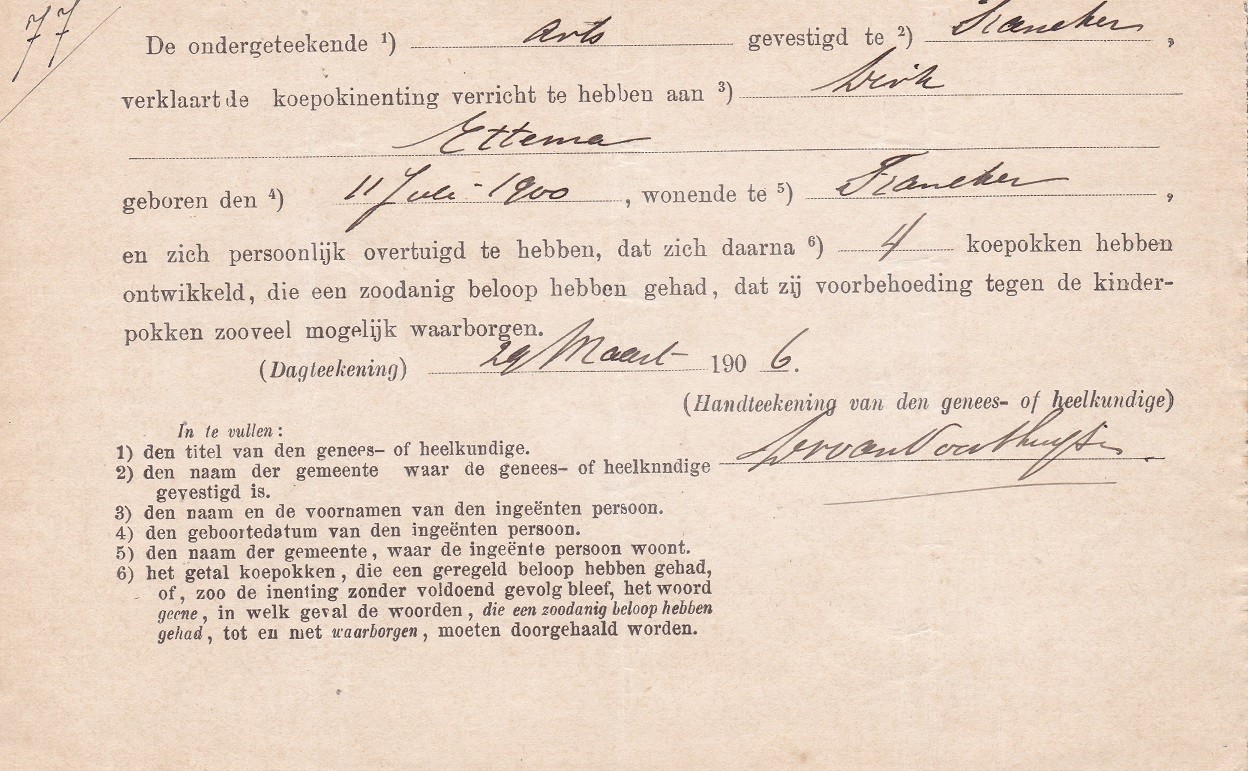 77
De ondergeteekende 1) Arts gevestigd te 2) Franeker,
verklaart de koepokinenting verricht te hebben aan 3) Dirk
Ettema
geboren den 4) 11 Juli 1900, wonende te 5) Franeker,
en zich persoonlijk overtuigd te hebben, dat zich daarna 6) 4 koepokken hebben
ontwikkeld, die een zoodanig beloop hebben gehad, dat zij voorbehoeding tegen de kinder-
pokken zooveel mogelijk waarborgen.
(Dagteekening) 29 Maart 1906.
(Handteekening van den genees- of heelkundige)
In te vullen:
1) den titel van den genees- of heelkundige.
2) den naam der gemeente waar de genees- of heelknndige
gevestigd is.
3) den naam en de voornamen van den ingeënten persoon.
4) den geboortedatum van den ingeënten persoon.
5) den naam der gemeente, waar de ingeënte persoon woont.
6) het getal koepokken, die een geregeld beloop hebben gehad,
of, zoo de inenting zonder voldoend gevolg bleef, het woord
geene, in welk geval de woorden, die een zoodanig beloop hebben
gehad, tot en met waarborgen, moeten doorgehaald worden.